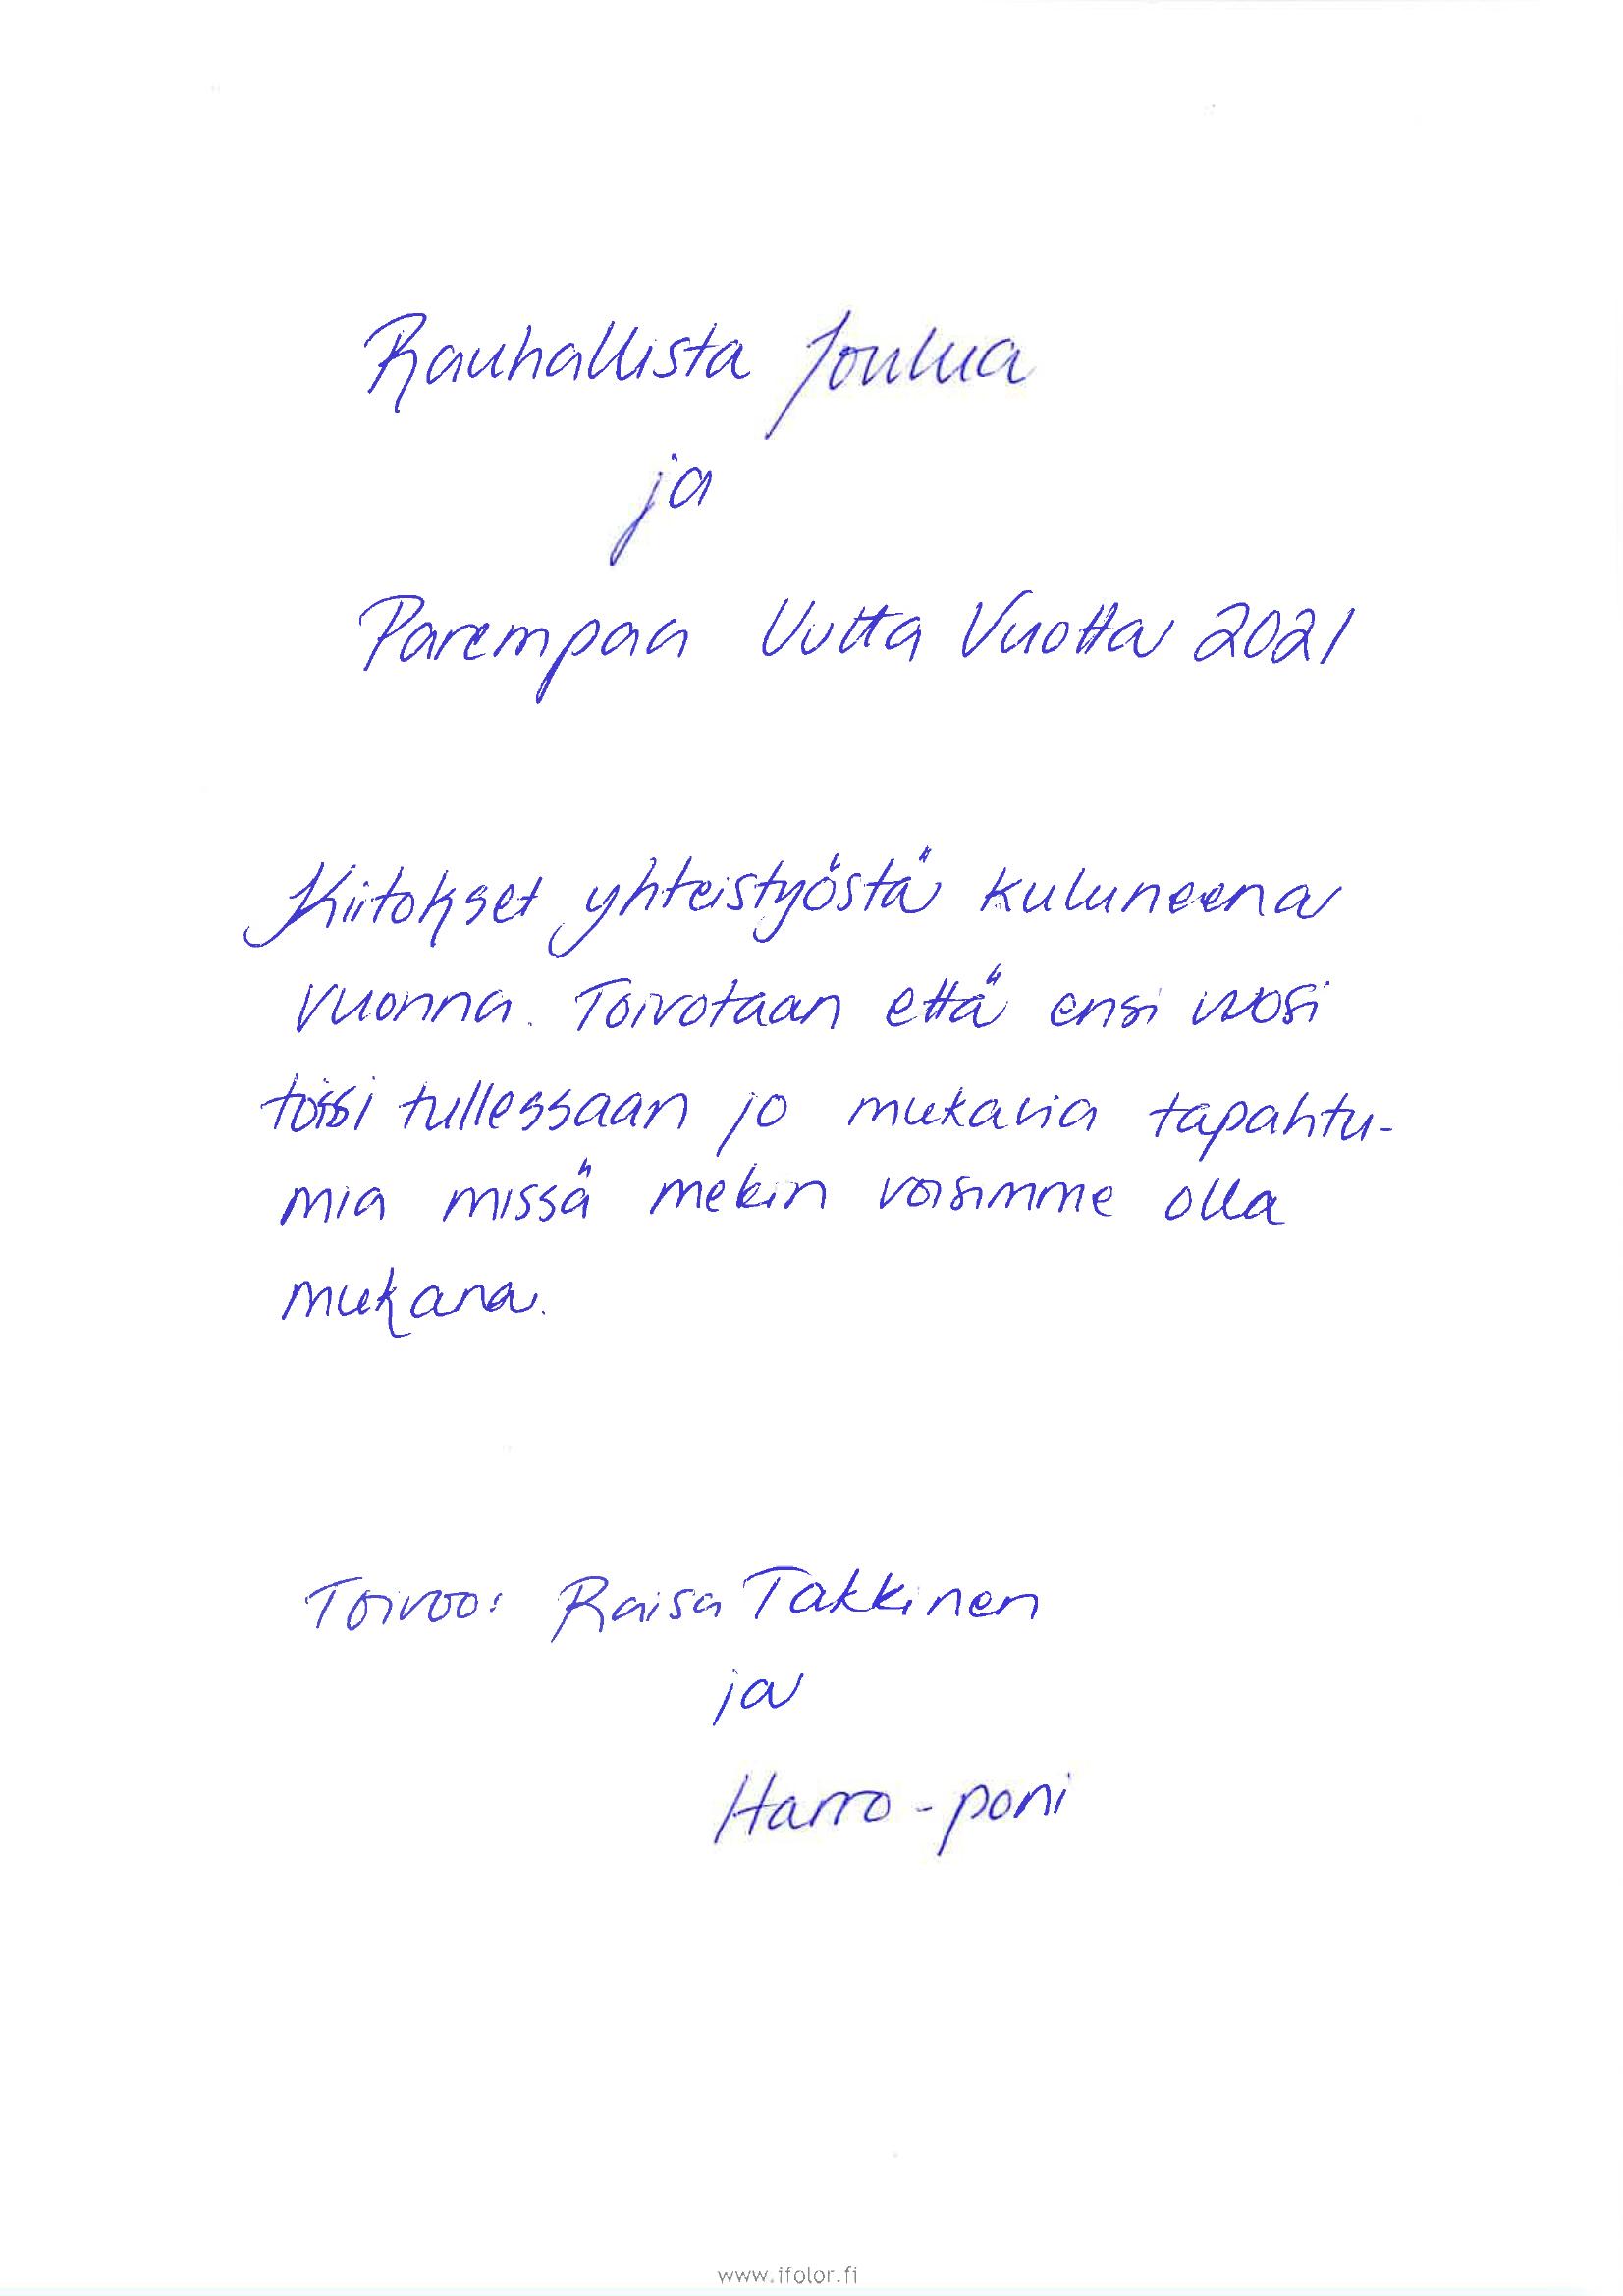 Rauhallista Joulua
ja
Parempaa Uutta Vuotta 2021
Kiitokset yhteistyöstä kuluneena
vuonna. Toivotaan että ensi vuosi
toisi tullessaan jo mukavia tapahtu-
mia missä mekin voisimme olla
mukana.
Toivoo: Raisa Takkinen
ja
Harro-poni
www.ifolor.fi